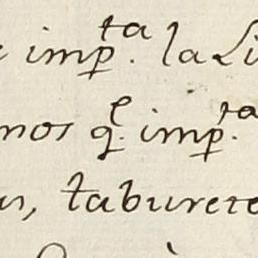 e imp.ta la Li
mos q.e imp.ta
as, taburete